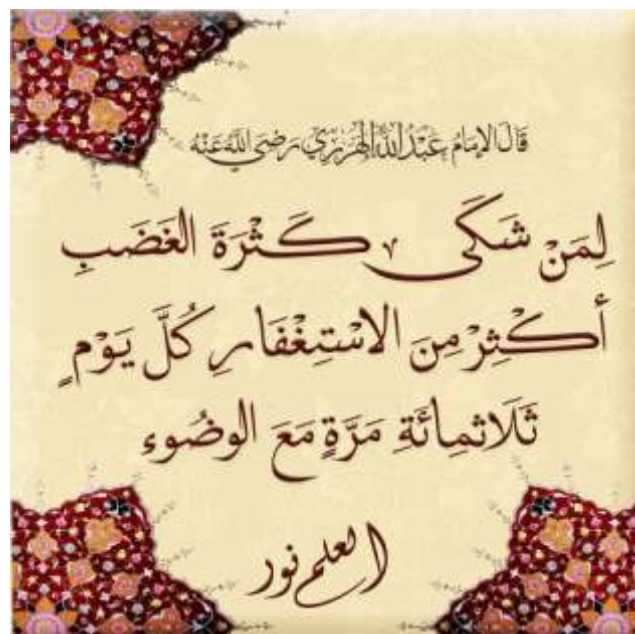 قَالَ الإِمَامُ عَبْدُ اللهِ الْهَرَرِيُّ رَضِيَ اللهُ عَنْهُ
لِمَنْ شَكَى كَثْرَةَ الغَضَبِ
أَكْثِرْ مِنَ الاسْتِغْفَارِ كُلَّ يَوْمٍ
ثَلَاثمِائَةِ مَرَّةٍ مَعَ الوضُوء
العلم نور